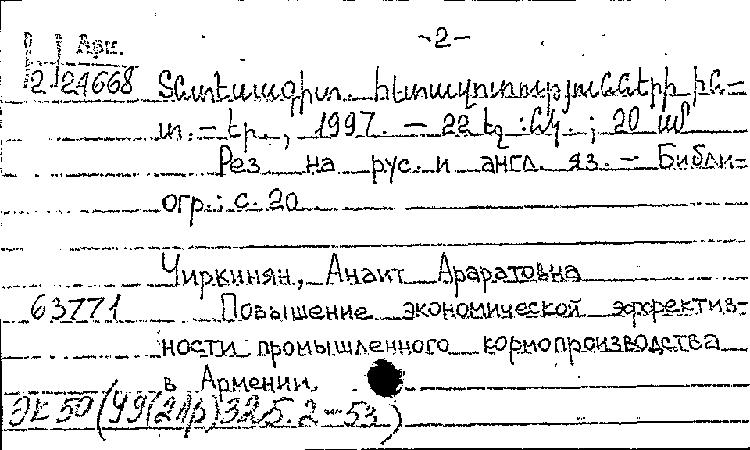 -2-
Арм.
2 24668 Տնտեսագիտ. հետազոտությունների ին-
տ. – Եր., 1997. – 22 էջ : նկ. ; 20 սմ
Рез. на рус. и англ. яз. – Библи-
огр.: с. 20
Чиркинян, Анаит Араратовна
63771 Повышение экономической эффектив-
ности промышленного кормопроизводства
в Армении.
ЭК 50 (У9(2Ар)325.2-53)